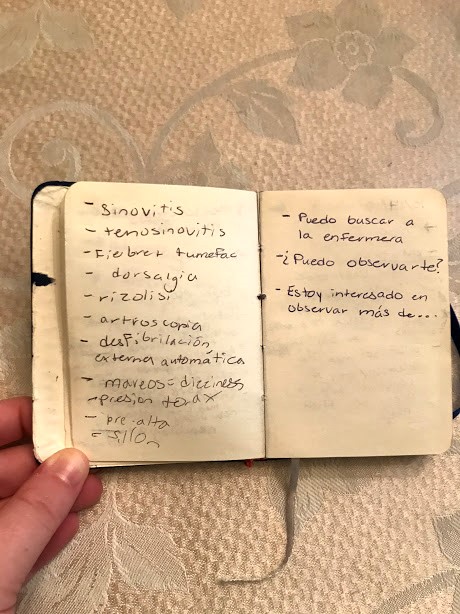 - sinovitis
- tenosinovitis
- Fiebre + tumefac
- dorsalgia
- rizolisi
- artroscopia
- desfibrilación
externa automática
- mareos = dizziness
- presion torax
- pre-alta
= sillon
- Puedo buscar a
la enfermera
- ¿Puedo observarte?
- Estoy interesado en
observar más de...